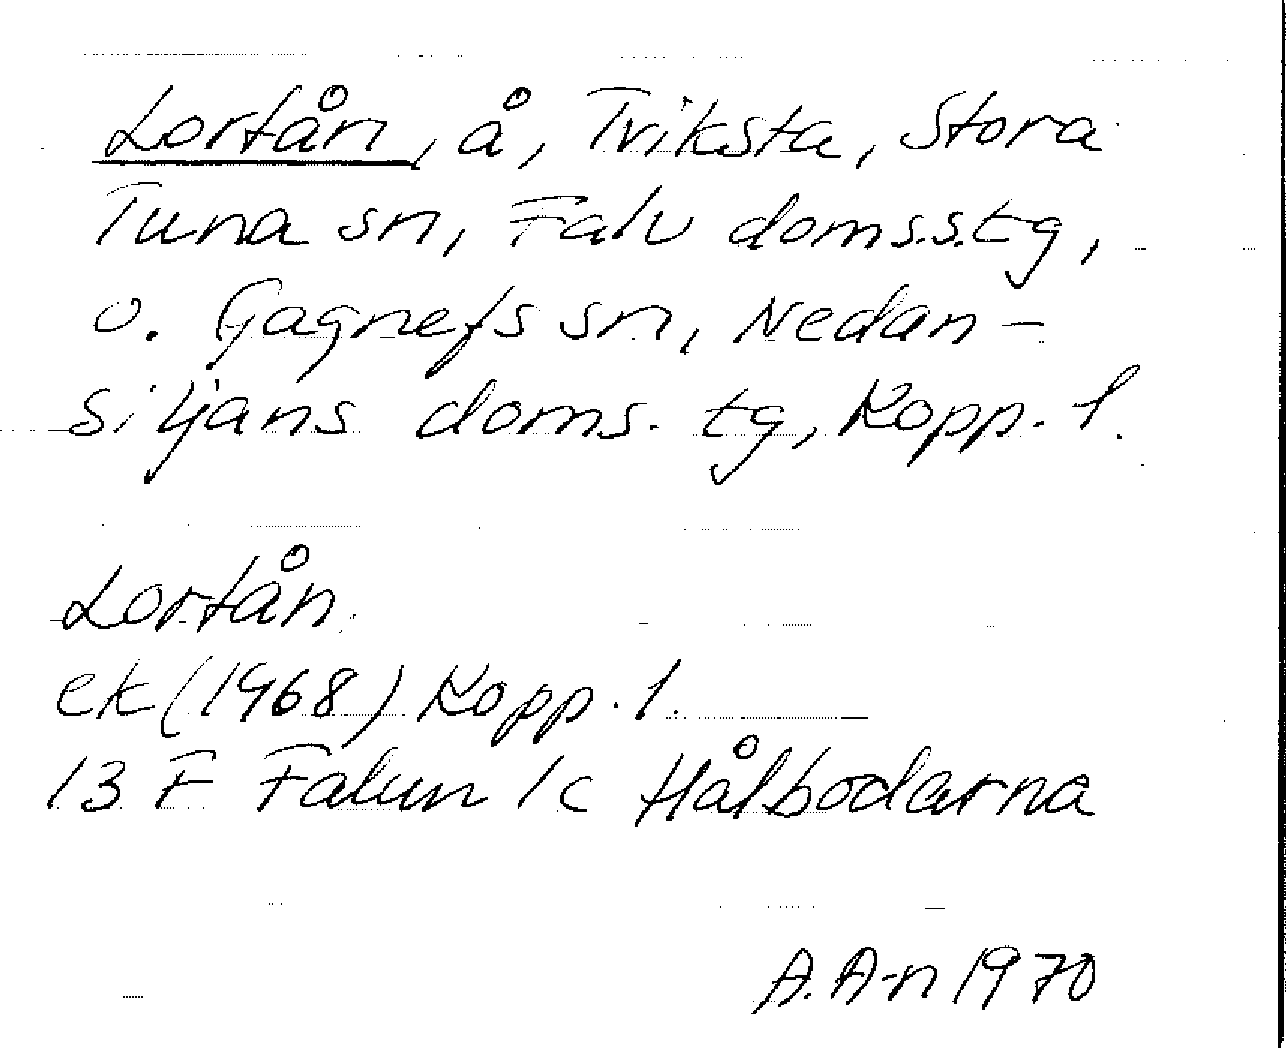 Lortån, å, Tviksta, Stora
Tuna sn, Falu doms.s.tg,
o. Gagnefs sn, Nedan-
siljans doms. tg, Kopp. l.
Lortån
ek (1968) Kopp. l.
13 F Falun 1c Hålbodarna
A. A-n 1970